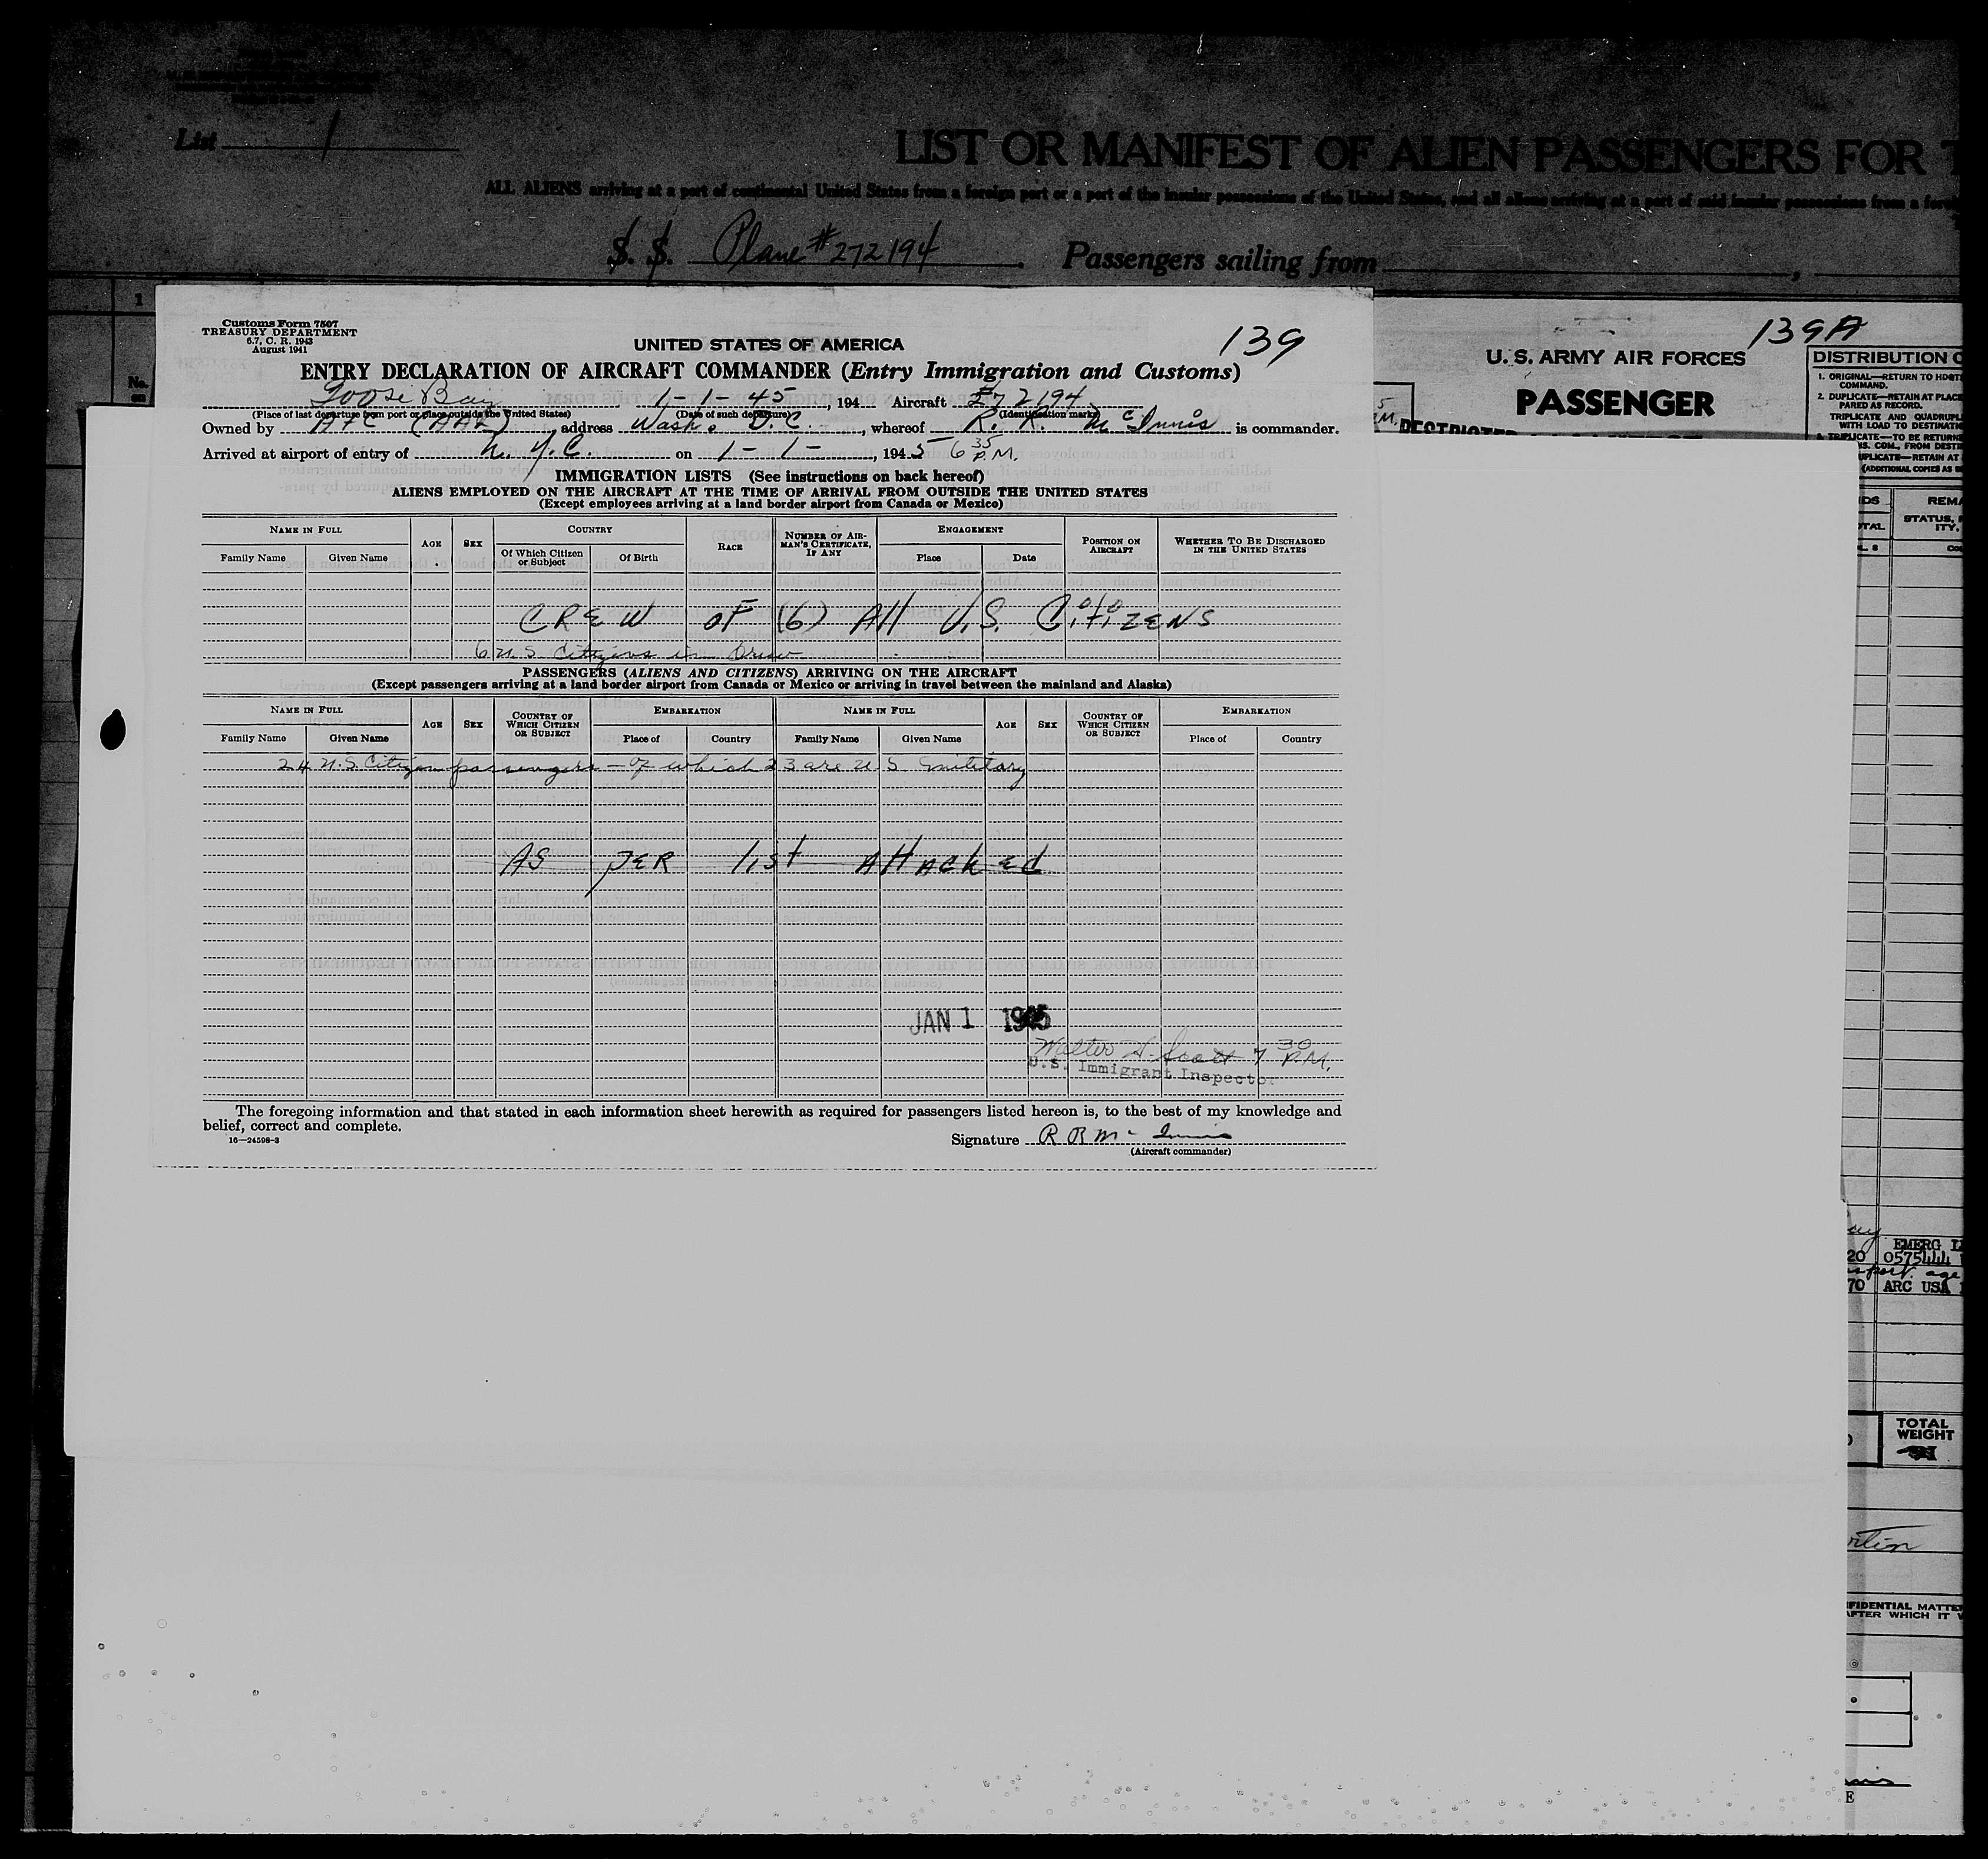 List 1
LIST OR MANIFEST OF ALIEN PASSENGERS FOR T
ALL ALIENS arriving at a port of continental United States from a foreign port or a port of the insular possessions of the United States, and all aliens arriving at a port of said insular possessions from a
S. S. Plane # 272194. Passengers sailing from ,
1
No.
Customs Form 7507
TREASURY DEPARTMENT
6.7, C. R. 1943
August 1941
139
UNITED STATES OF AMERICA
ENTRY DECLARATION OF AIRCRAFT COMMANDER (Entry Immigration and Customs)
Goose Bay 1-1-45, 194 Aircraft 272194
(Place of last departure from port or place outside the United States) (Date of such departure) (Identification marks)
Owned by ATC (AAF), address Wash. D.C., whereof R. R. McInnis is commander.
Arrived at airport of entry of N.Y.C. on 1-1-, 1945 6 35 P.M.
IMMIGRATION LISTS (See instructions on back hereof)
ALIENS EMPLOYED ON THE AIRCRAFT AT THE TIME OF ARRIVAL FROM OUTSIDE THE UNITED STATES
(Except employees arriving at a land border airport from Canada or Mexico)
NAME IN FULL AGE SEX COUNTRY RACE NUMBER OF AIRMAN'S CERTIFICATE, IF ANY ENGAGEMENT POSITION ON AIRCRAFT WHETHER TO BE DISCHARGED IN THE UNITED STATES
Family Name Given Name Of Which Citizen or Subject Of Birth Place Date
CREW OF (6) All U.S. CITIZENS
6 U.S. Citizens in Crew
PASSENGERS (ALIENS AND CITIZENS) ARRIVING ON THE AIRCRAFT
(Except passengers arriving at a land border airport from Canada or Mexico or arriving in travel between the mainland and Alaska)
NAME IN FULL AGE SEX COUNTRY OF WHICH CITIZEN OR SUBJECT EMBARKATION NAME IN FULL AGE SEX COUNTRY OF WHICH CITIZEN OR SUBJECT EMBARKATION
Family Name Given Name Place of Country Family Name Given Name Place of Country
24 U.S. Citizen passengers - of which 23 are U.S. military
AS PER list AttAchEd
JAN 1 1945
Walter H. Scott 7 30 P.M.
U.S. Immigrant Inspector
The foregoing information and that stated in each information sheet herewith as required for passengers listed hereon is, to the best of my knowledge and
belief, correct and complete.
16—24598-3
Signature R R McInnis
(Aircraft commander)
139A
U. S. ARMY AIR FORCES
PASSENGER
DISTRIBUTION
1. ORIGINAL—RETURN TO HDQTS
COMMAND.
2. DUPLICATE—RETAIN AT PLACE
PARED AS RECORD.
TRIPLICATE AND QUADRUPL
WITH LOAD TO DESTINATI
TRIPLICATE—TO BE RETURNE
COM., FROM DESTI
RETAIN AT
(ADDITIONAL COPIES AS
REMA
STATUS,
EMERG
20 0575444
70 ARC USA
TOTAL
WEIGHT
FIDENTIAL MATTE
AFTER WHICH IT